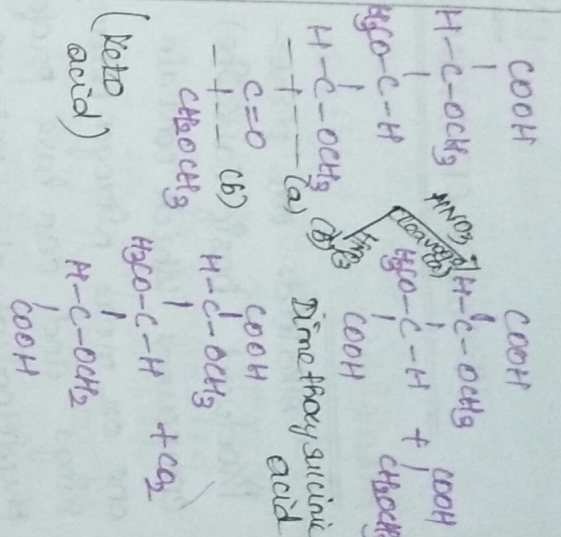 COOH
H-C-OCH3
H3CO-C-H
H-C-OCH3
--+--- (a)
C=O
--+-- (b)
CH2OCH3
(Keto acid)
HNO3
(cleavage (a))
HNO3
COOH
H-C-OCH3
H3CO-C-H
COOH
+
COOH
CH2OCH3
Dimethoxy succinic acid
COOH
H-C-OCH3
H3CO-C-H
H-C-OCH2
COOH
+CO2